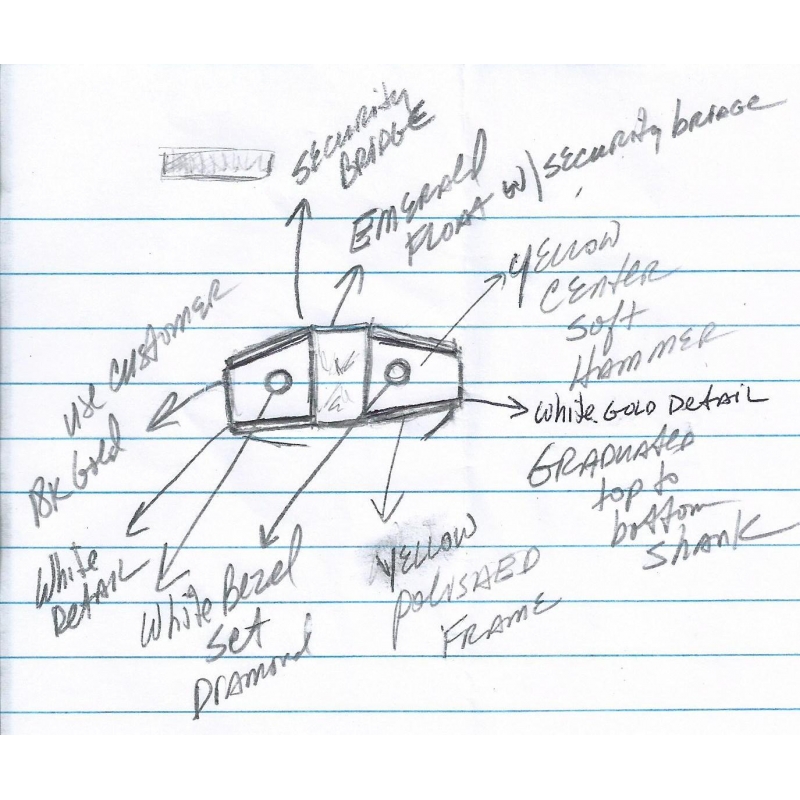 SECURITY
BRIDGE
EMERALD
FLOAT W/ SECURITY bRIDGE
YELLOW
CENTER
Soft
HAMMER
use customer
18K Gold
White GOLD DETAIL
GRADUATED
top to
bottom
Shank
White
DETAIL
White Bezel
Set
DIAMOND
YELLOW
POLISHED
FRAME